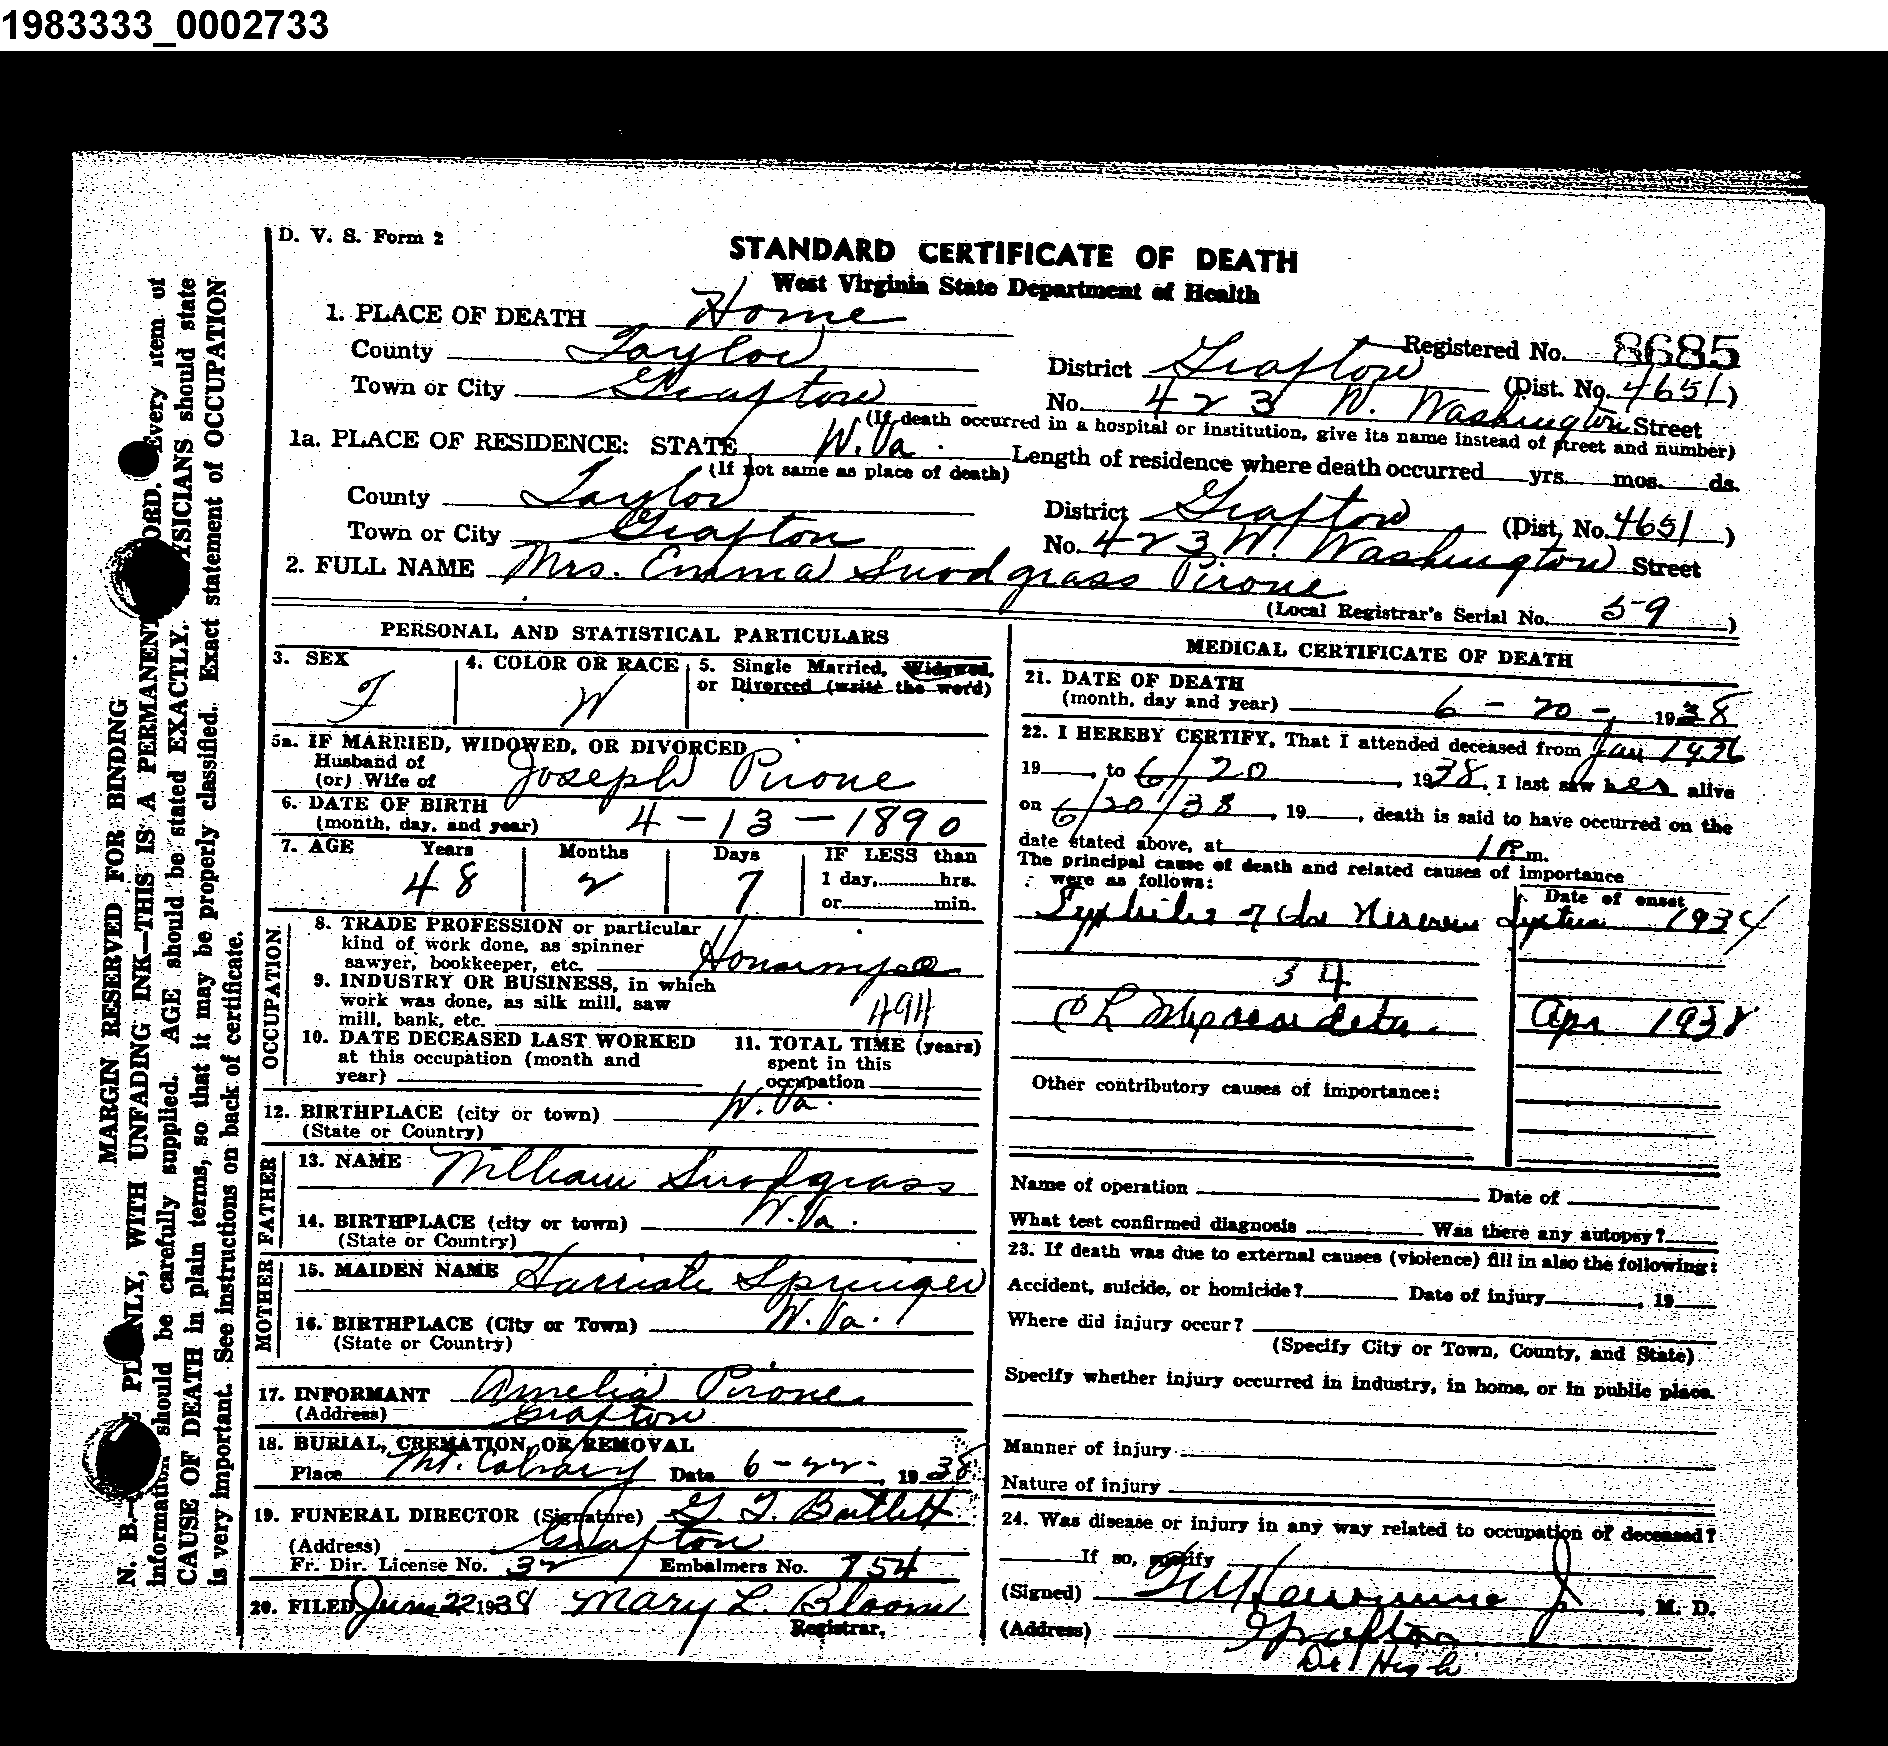 1983333_0002733
D. V. S. Form 2
STANDARD CERTIFICATE OF DEATH
West Virginia State Department of Health
1. PLACE OF DEATH Home
Registered No. 8685
County Taylor
District Grafton (Dist. No. 4651)
Town or City Grafton
No. 423 W. Washington Street
(If death occurred in a hospital or institution, give its name instead of street and number)
1a. PLACE OF RESIDENCE: STATE W. Va.
Length of residence where death occurred yrs. mos. ds.
(If not same as place of death)
County Taylor
District Grafton (Dist. No. 4651)
Town or City Grafton
No. 423 W. Washington Street
2. FULL NAME Mrs. Emma Snodgrass Pirone
(Local Registrar's Serial No. 59)
PERSONAL AND STATISTICAL PARTICULARS
3. SEX F
4. COLOR OR RACE W
5. Single Married, Widowed, or Divorced (write the word)
5a. IF MARRIED, WIDOWED, OR DIVORCED
Husband of
(or) Wife of Joseph Pirone
6. DATE OF BIRTH
(month, day, and year) 4-13-1890
7. AGE Years Months Days IF LESS than
48 2 7 1 day, hrs.
or min.
OCCUPATION
8. TRADE PROFESSION or particular
kind of work done, as spinner
sawyer, bookkeeper, etc. Housewife
9. INDUSTRY OR BUSINESS, in which
work was done, as silk mill, saw
mill, bank, etc. 494
10. DATE DECEASED LAST WORKED
at this occupation (month and
year)
11. TOTAL TIME (years)
spent in this
occupation
12. BIRTHPLACE (city or town) W. Va.
(State or Country)
FATHER
13. NAME William Snodgrass
14. BIRTHPLACE (city or town) W. Va.
(State or Country)
MOTHER
15. MAIDEN NAME Springer
16. BIRTHPLACE (City or Town) W. Va.
(State or Country)
17. INFORMANT Amelia Pirone
(Address) Grafton
18. BURIAL, CREMATION, OR REMOVAL
Place Mt. Calvary Date 6-22- 1938
19. FUNERAL DIRECTOR (Signature) Bartlett
(Address) Grafton
Fr. Dir. License No. 32 Embalmers No. 754
20. FILED June 22 1938 Mary L. Bloom
Registrar.
MEDICAL CERTIFICATE OF DEATH
21. DATE OF DEATH
(month, day and year) 6-20-, 1938
22. I HEREBY CERTIFY, That I attended deceased from Jan
19 , to 6/20, 1938, I last saw her alive
on 6/20/38, 19 , death is said to have occurred on the
date stated above, at 1 P. m.
The principal cause of death and related causes of importance
were as follows:
Date of onset
Syphilis of the Nervous System 1934
34
Ch Myocarditis Apr 1938
Other contributory causes of importance:
Name of operation Date of
What test confirmed diagnosis Was there any autopsy?
23. If death was due to external causes (violence) fill in also the following:
Accident, suicide, or homicide? Date of injury , 19
Where did injury occur?
(Specify City or Town, County, and State)
Specify whether injury occurred in industry, in home, or in public place.
Manner of injury
Nature of injury
24. Was disease or injury in any way related to occupation of deceased?
If so, specify
(Signed) M. D.
(Address) Grafton
MARGIN RESERVED FOR BINDING
N. B.— PLAINLY, WITH UNFADING INK—THIS IS A PERMANENT RECORD. Every item of
information should be carefully supplied. AGE should be stated EXACTLY. PHYSICIANS should state
CAUSE OF DEATH in plain terms, so that it may be properly classified. Exact statement of OCCUPATION
is very important. See instructions on back of certificate.